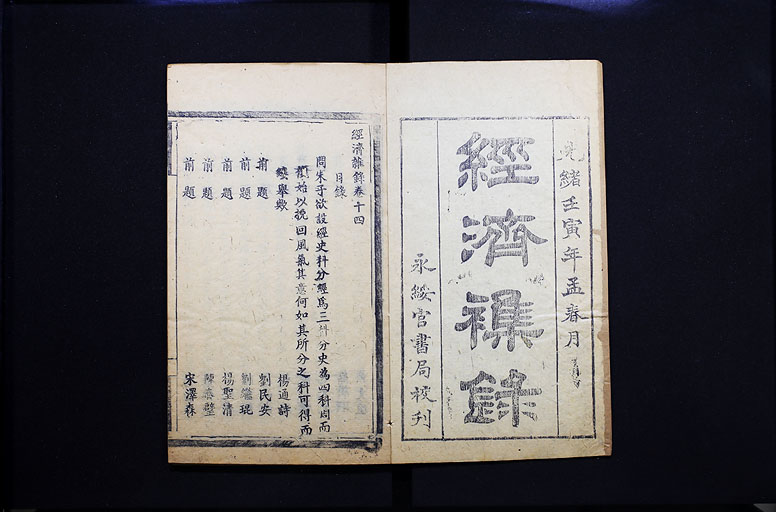 光緒壬寅年孟春月
經濟襍錄
永綏官書局校刊
經濟襍錄卷十四
目錄
問朱子欲設經史科分經爲三科分史爲四科周而
復始以挽回風氣其意何如其所分之科可得而
縷舉歟
楊通詩
前題
劉民安
前題
劉繼琨
前題
楊聖清
前題
陳春
前題
宋澤森